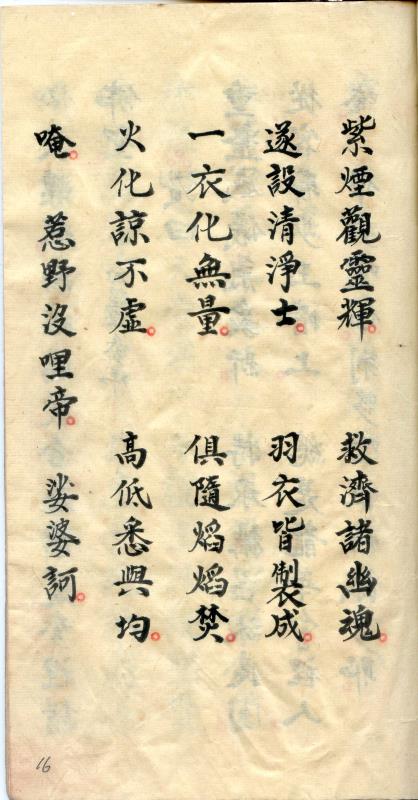 紫煙觀靈輝。救濟諸幽魂。
遂設清淨士。羽衣皆製成。
一衣化無量。俱隨焰焰焚。
火化諒不虛。高低悉與均。
唵。惹野沒哩帝。娑婆訶。
16